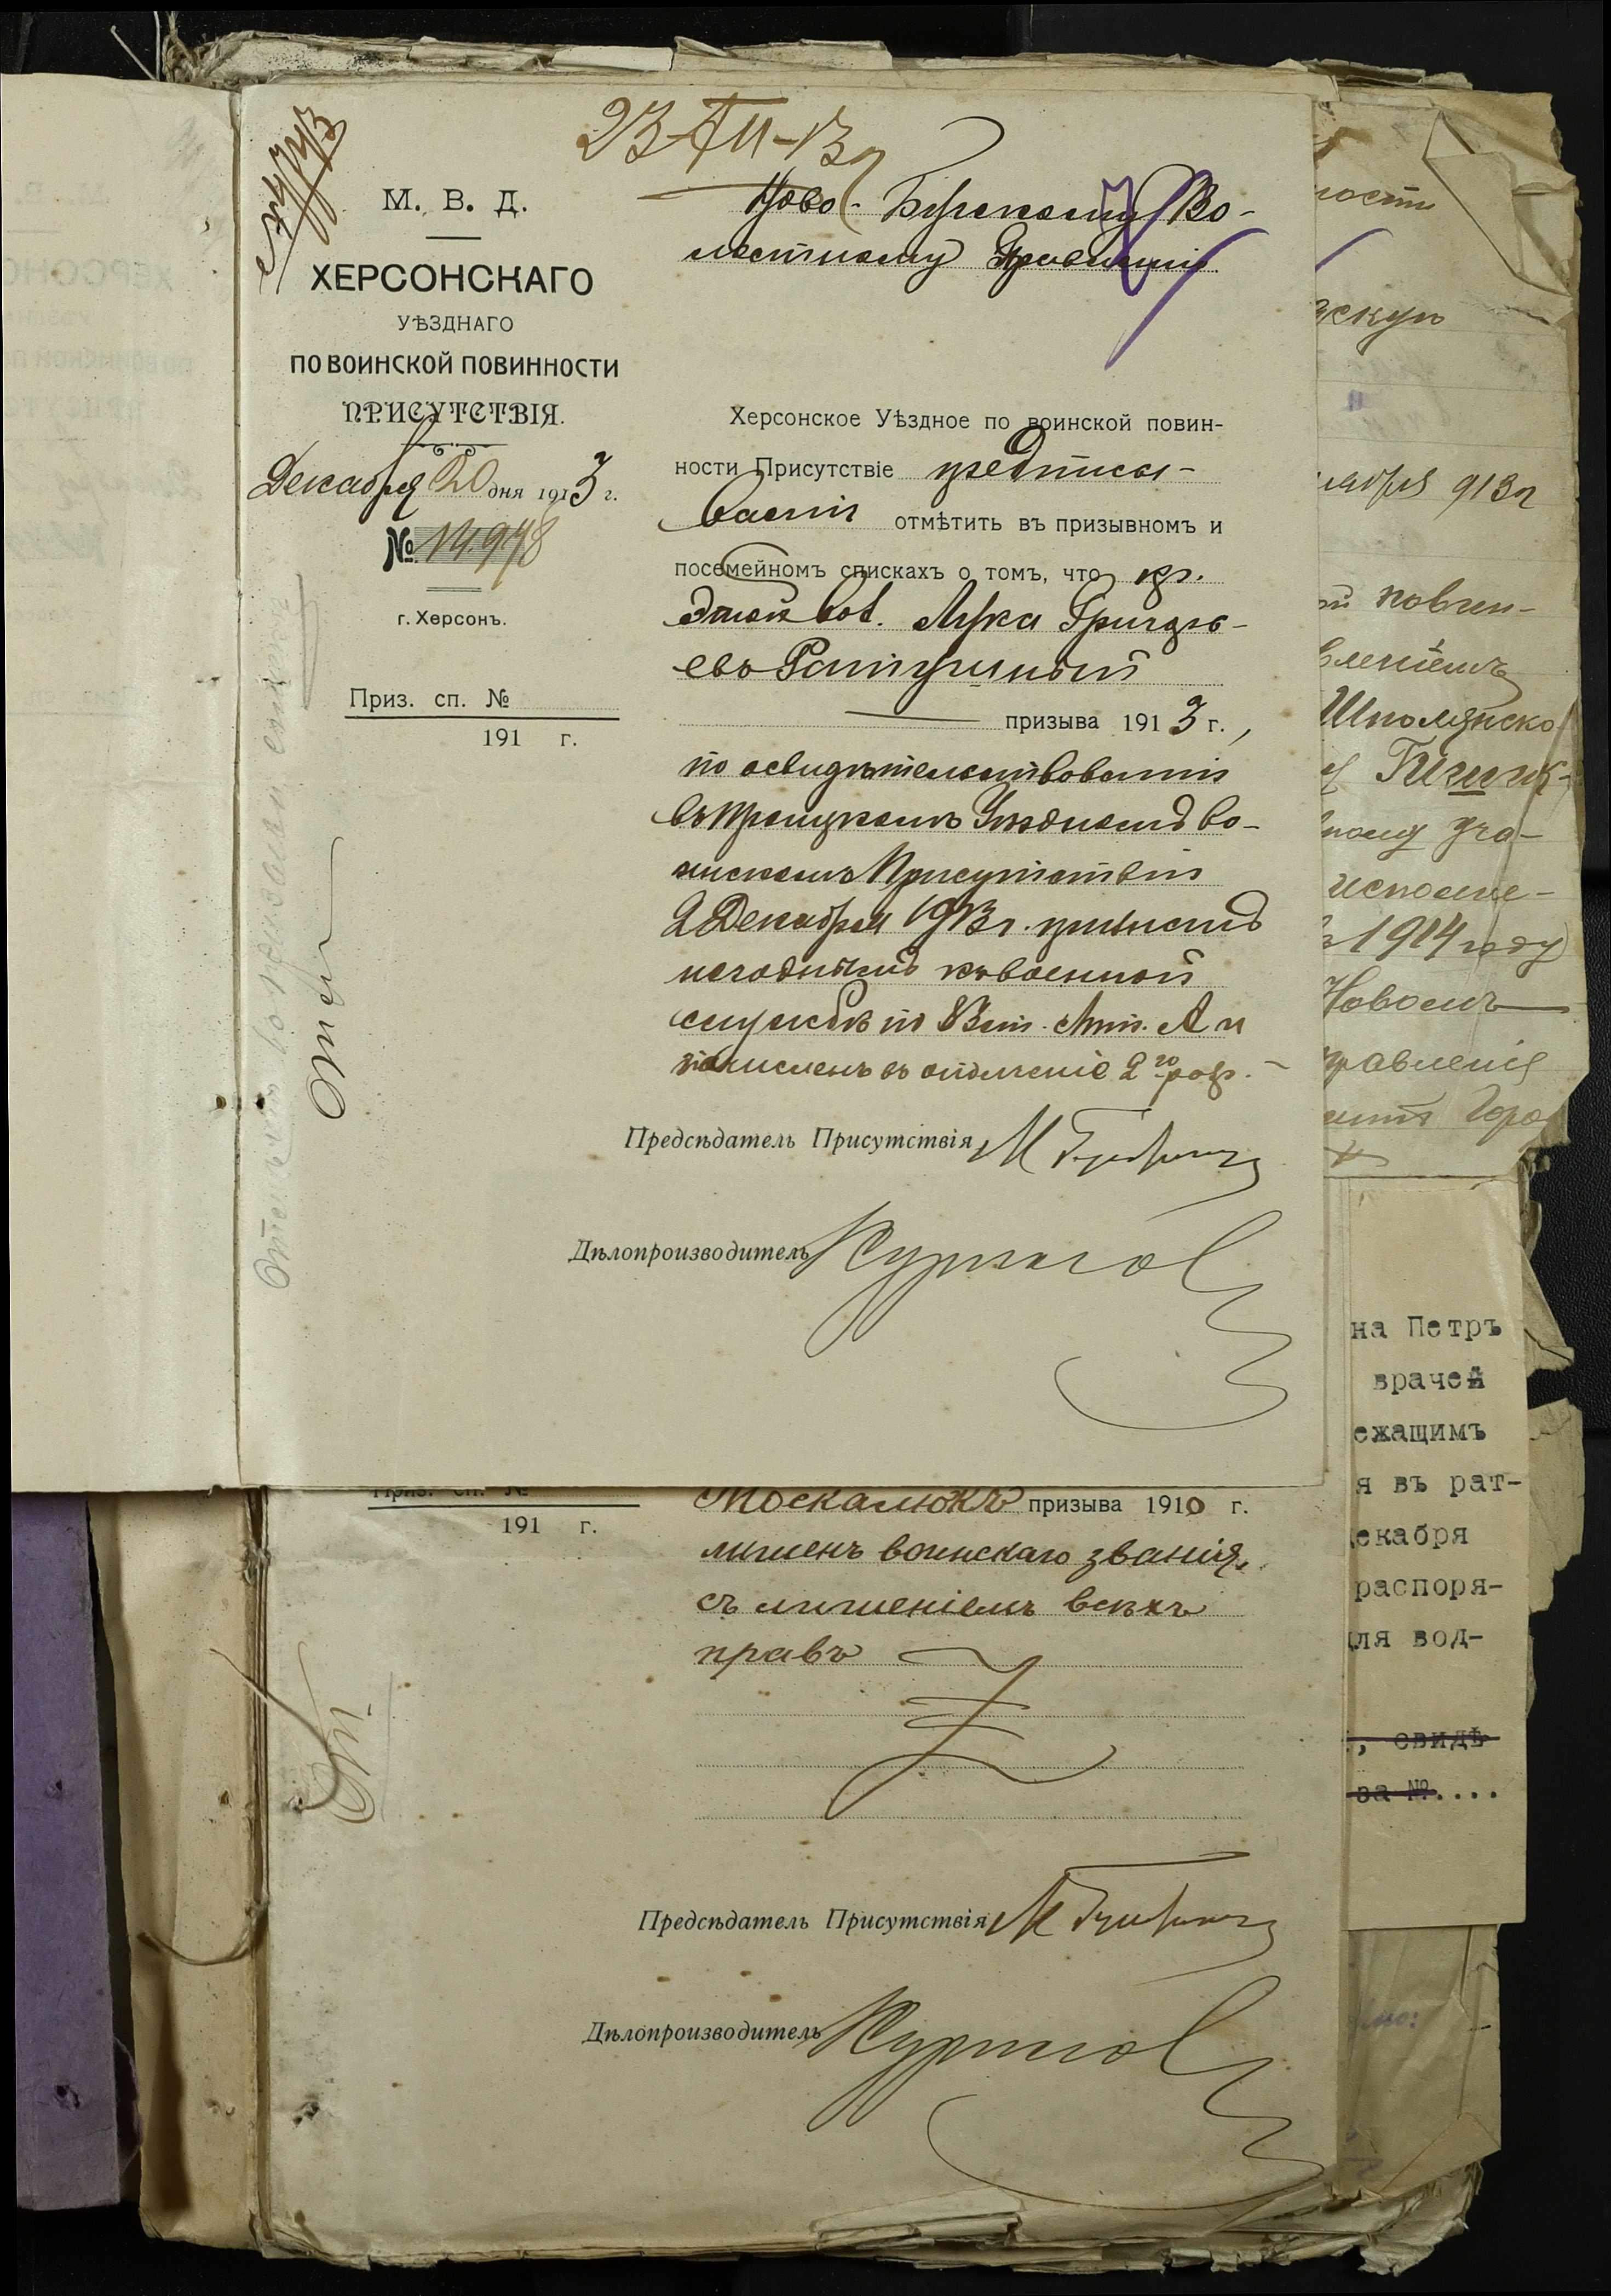 23-XII-13 г
М. В. Д.
ХЕРСОНСКАГО
УѢЗДНАГО
ПО ВОИНСКОЙ ПОВИННОСТИ
ПРИСУТСТВІЯ.
Декабря 20 дня 1913 г.
№ 14948
г. Херсонъ.
Приз. сп. №
191 г.
Ново-Бугскому Во-
лостному Правленію
Херсонское Уѣздное по воинской повин-
ности Присутствіе предписы-
ваетъ отмѣтить въ призывномъ и
посемейномъ спискахъ о томъ, что кр.
этой вол. Лука Григорь-
евъ Ратушный
призыва 1913 г.,
по освидѣтельствованіи
въ Уѣздномъ во-
инскомъ Присутствіи
2 Декабря 1913 г. признанъ
негоднымъ къ военной
службѣ по Лит. А и
зачисленъ въ ополченіе 2го разр.
Предсѣдатель Присутствія
Дѣлопроизводитель
Приз. сп. №
191 г.
Москалюкъ призыва 1910 г.
лишенъ воинскаго званія,
съ лишеніемъ всѣхъ
правъ
Предсѣдатель Присутствія
Дѣлопроизводитель
ности
скую
ноября 913 г
ой повин-
вленіемъ
Шполянско
ному уча-
исполне-
1914 году
Новомъ
правленія
на Петръ
врачей
ежащимъ
я въ рат-
екабря
распоря-
ля вод-
, свидѣ
за №....